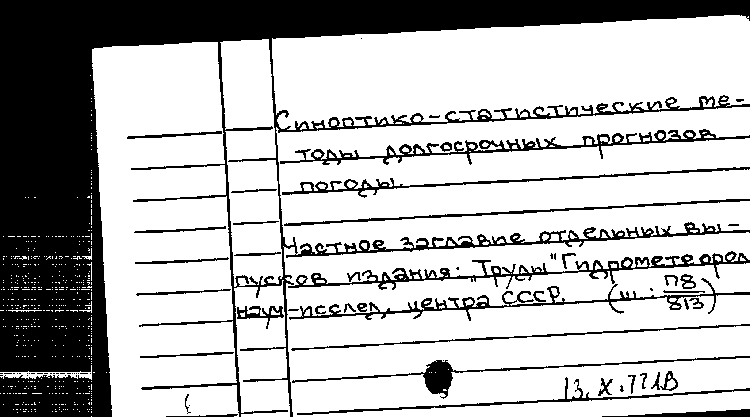 Синоптико-статистические ме-
тоды долгосрочных прогнозов
погоды.
Частное заглавие отдельных вы-
пусков издания: "Труды" Гидрометеорол
науч-исслед. центра СССР. (ш. : П8/813)
13. X. 77